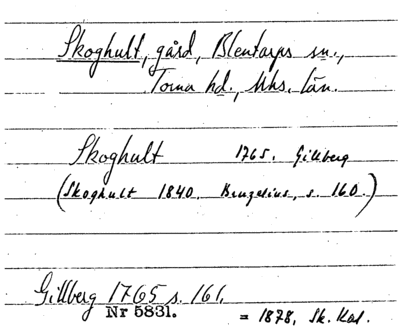 Skoghult, gård, Blentarps sn.,
Torna hd., Mhs. län.
Skoghult 1765. Gillberg
(Skoghult 1840. Bruzelius, s. 160.)
Gillberg 1765 s. 161.
Nr 5831.
= 1878, Sk. Kal.